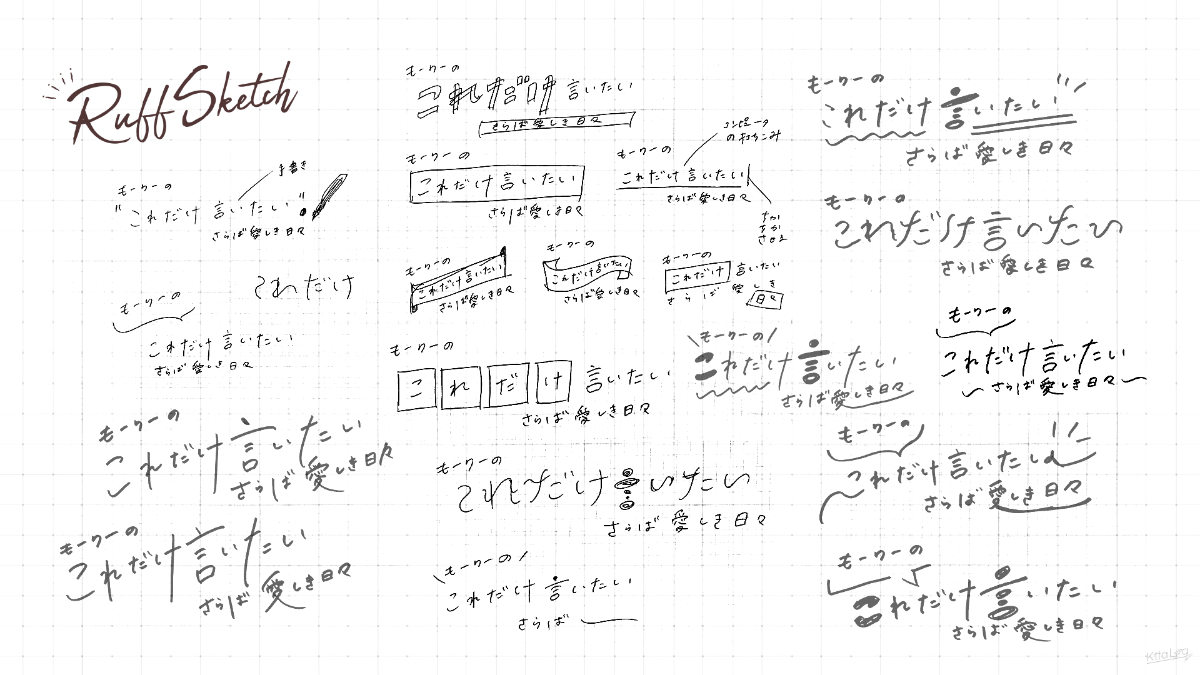 Ruff Sketch
モークーの
"これだけ言いたい"
さらば愛しき日々
手書き
これだけ
モークーの
これだけ言いたい
さらば愛しき日々
モークーの
これだけ言いたい
さらば愛しき日々
モークーの
これだけ言いたい
さらば愛しき日々
モークーの
これだけ言いたい
さらば愛しき日々
モークーの
これだけ言いたい
さらば愛しき日々
モークーの
これだけ言いたい
さらば愛しき日々
コンピュータ
モークーの
これだけ言いたい
さらば愛しき日々
モークーの
これだけ言いたい
さらば愛しき日々
モークーの
これだけ言いたい
さらば愛しき日々
モークーの
これだけ言いたい
さらば愛しき日々
モークーの
これだけ言いたい
さらば愛しき日々
モークーの
これだけ言いたい
さらば
モークーの
これだけ言いたい
さらば愛しき日々
モークーの
これだけ言いたい
さらば愛しき日々
モークーの
これだけ言いたい
さらば愛しき日々
モークーの
これだけ言いたい
さらば愛しき日々
モークーの
これだけ言いたい
さらば愛しき日々
モークーの
これだけ言いたい
さらば愛しき日々